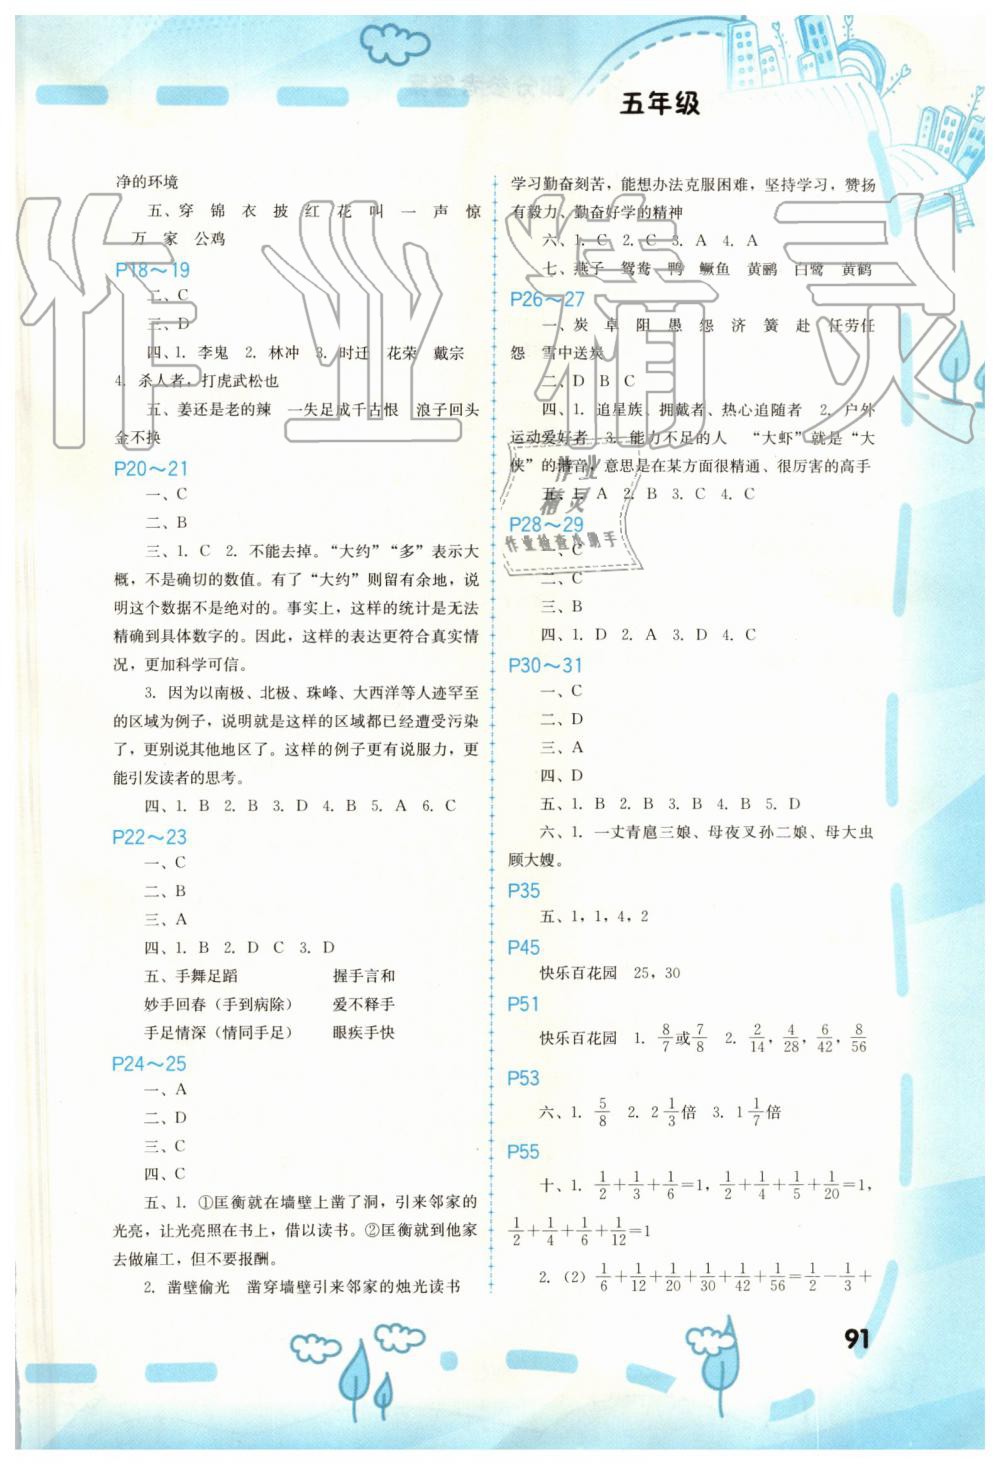 五年级
净的环境
五、穿 锦 衣 披 红 花 叫 一 声 惊
万 家 公鸡
P18～19
二、C
三、D
四、1. 李鬼 2. 林冲 3. 时迁 花荣 戴宗
4. 杀人者，打虎武松也
五、姜还是老的辣 一失足成千古恨 浪子回头
金不换
P20～21
一、C
二、B
三、1. C 2. 不能去掉。“大约”“多”表示大
概，不是确切的数值。有了“大约”则留有余地，说
明这个数据不是绝对的。事实上，这样的统计是无法
精确到具体数字的。因此，这样的表达更符合真实情
况，更加科学可信。
3. 因为以南极、北极、珠峰、大西洋等人迹罕至
的区域为例子，说明就是这样的区域都已经遭受污染
了，更别说其他地区了。这样的例子更有说服力，更
能引发读者的思考。
四、1. B 2. B 3. D 4. B 5. A 6. C
P22～23
一、C
二、B
三、A
四、1. B 2. D C 3. D
五、手舞足蹈 握手言和
妙手回春（手到病除） 爱不释手
手足情深（情同手足） 眼疾手快
P24～25
一、A
二、D
三、C
四、C
五、1. ①匡衡就在墙壁上凿了洞，引来邻家的
光亮，让光亮照在书上，借以读书。②匡衡就到他家
去做雇工，但不要报酬。
2. 凿壁偷光 凿穿墙壁引来邻家的烛光读书
学习勤奋刻苦，能想办法克服困难，坚持学习，赞扬
有毅力、勤奋好学的精神
六、1. C 2. C 3. A 4. A
七、燕子 鸳鸯 鸭 鳜鱼 黄鹂 白鹭 黄鹤
P26～27
一、炭 卓 阻 愚 怨 济 簧 赴 任劳任
怨 雪中送炭
二、D B C
四、1. 追星族、拥戴者、热心追随者 2. 户外
运动爱好者 3. 能力不足的人 “大虾”就是“大
侠”的谐音，意思是在某方面很精通、很厉害的高手
五、1. A 2. B 3. C 4. C
P28～29
一、C
二、C
三、B
四、1. D 2. A 3. D 4. C
P30～31
一、C
二、D
三、A
四、D
五、1. B 2. B 3. B 4. B 5. D
六、1. 一丈青扈三娘、母夜叉孙二娘、母大虫
顾大嫂。
P35
五、1，1，4，2
P45
快乐百花园 25，30
P51
快乐百花园 1. 8/7或7/8 2. 2/14，4/28，6/42，8/56
P53
六、1. 5/8 2. 2 1/3倍 3. 1 1/7倍
P55
十、1. 1/2+1/3+1/6=1，1/2+1/4+1/5+1/20=1，
1/2+1/4+1/6+1/12=1
2.（2）1/6+1/12+1/20+1/30+1/42+1/56=1/2-1/3+
91
作业精灵
作业
精灵
作业检查小助手